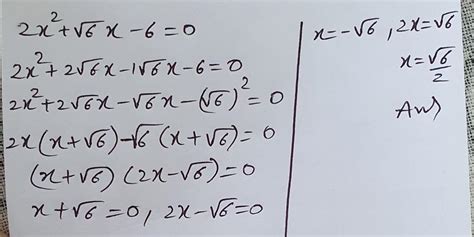 2x² + √6 x - 6 = 0
2x² + 2√6 x - 1√6 x - 6 = 0
2x² + 2√6 x - √6 x - (√6)² = 0
2x(x + √6) - √6 (x + √6) = 0
(x + √6) (2x - √6) = 0
x + √6 = 0, 2x - √6 = 0
x = -√6, 2x = √6
x = √6/2
Ans